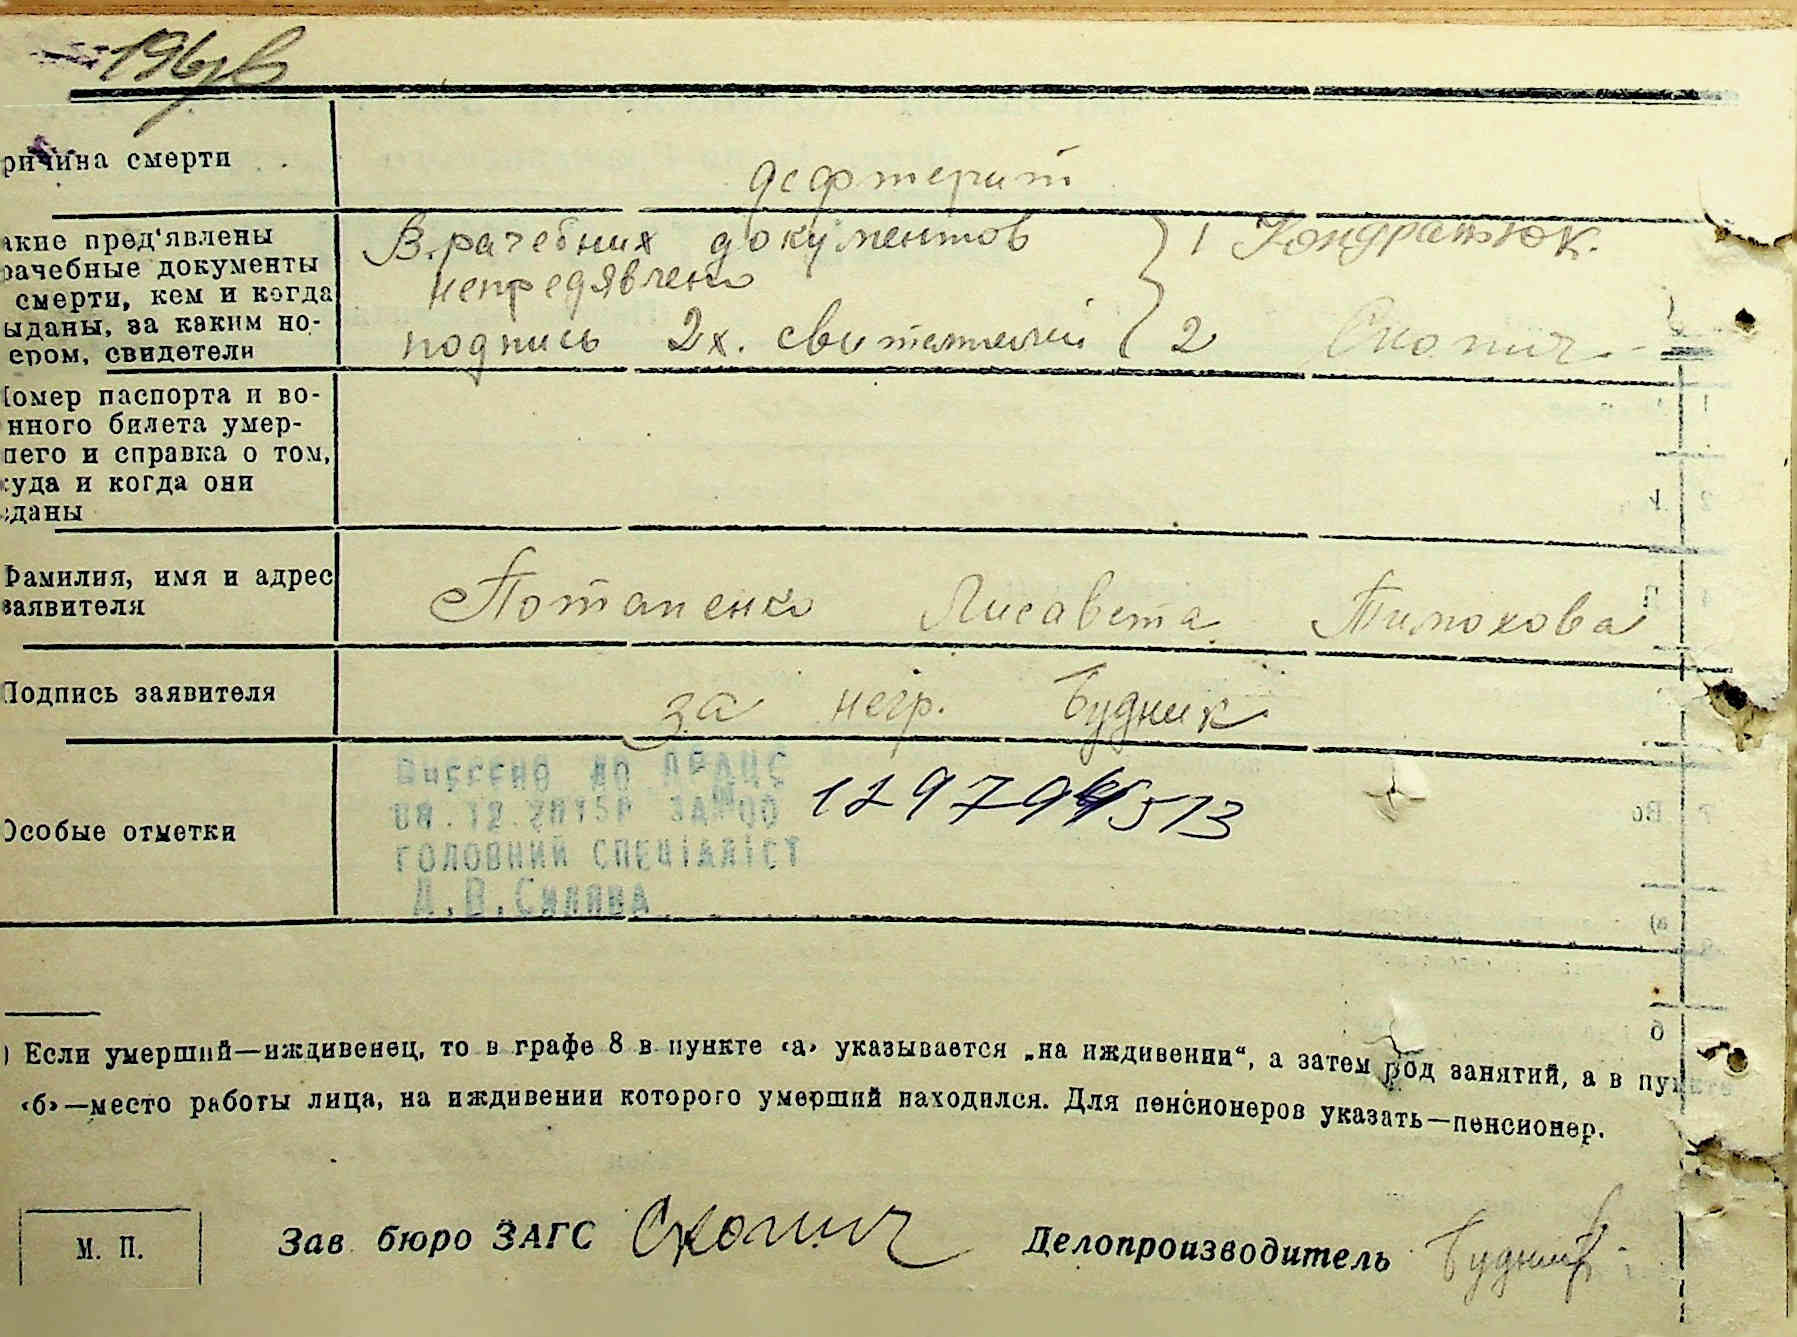 ричина смерти
дефтерит
акие пред'явлены
рачебные документы
смерти, кем и когда
ыданы, за каким но-
ером, свидетели
Врачебних документов
непредявлено
подпись 2х. свитетелей
1 Кондратюк.
2 Скопич.
Номер паспорта и во-
нного билета умер-
шего и справка о том,
куда и когда они
сданы
Фамилия, имя и адрес
заявителя
Потапенко Лисавета Тимохова
Подпись заявителя
за негр. Будник
Особые отметки
Внесено до ДРАЦС
08.12.2015р ЗА №00
головний спеціаліст
Д.В.Силина
513
) Если умерший—иждивенец, то в графе 8 в пункте «а» указывается „на иждивении“, а затем род занятий, а в пункте
«б»—место работы лица, на иждивении которого умерший находился. Для пенсионеров указать—пенсионер.
М. П.
Зав бюро ЗАГС Скопич Делопроизводитель Будник